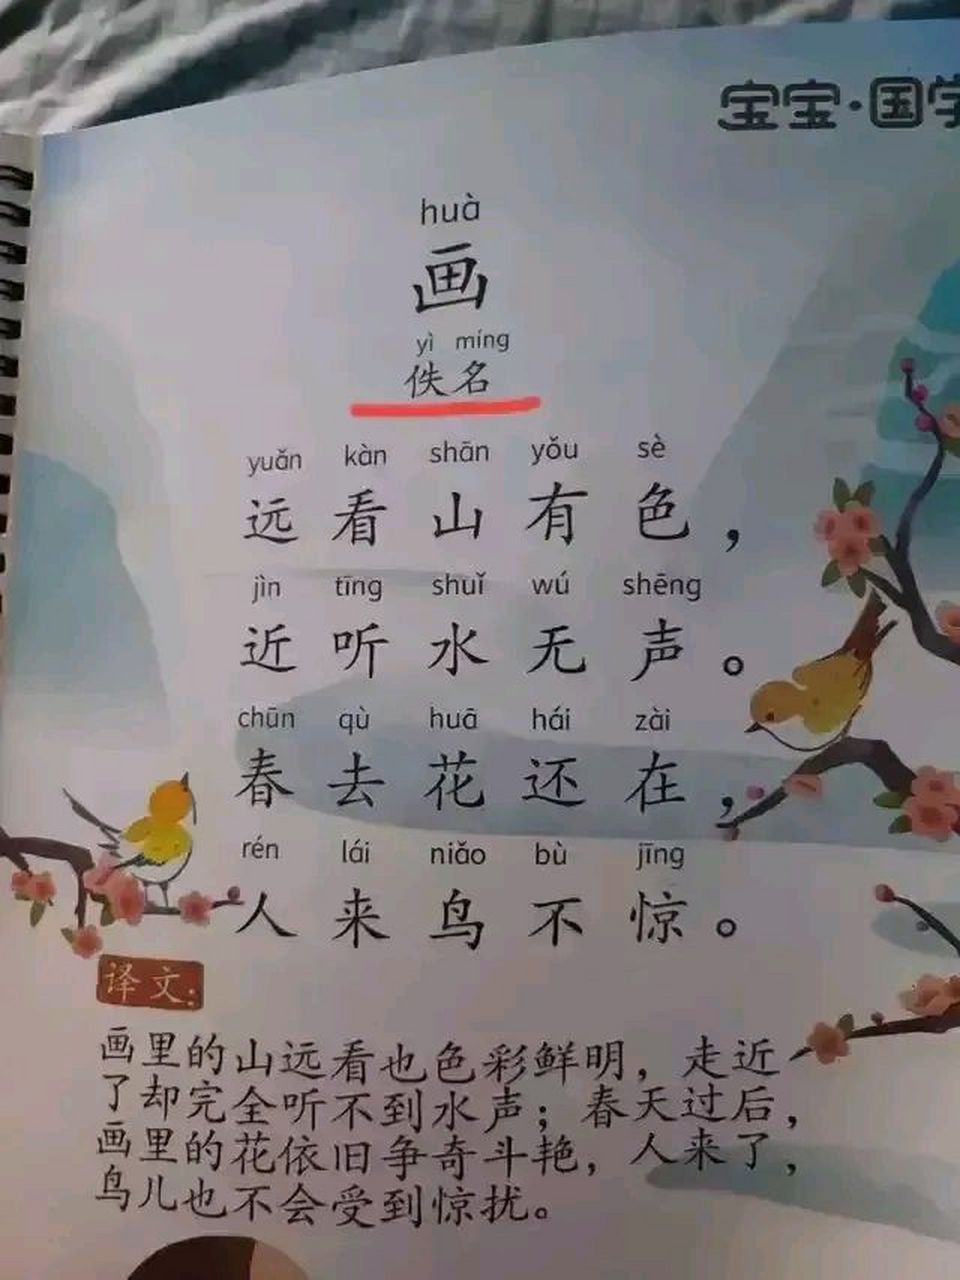 宝宝·国学
huà
画
yì míng
佚名
yuǎn kàn shān yǒu sè
远看山有色，
jìn tīng shuǐ wú shēng
近听水无声。
chūn qù huā hái zài
春去花还在，
rén lái niǎo bù jīng
人来鸟不惊。
译文：
画里的山远看也色彩鲜明，走近
了却完全听不到水声；春天过后，
画里的花依旧争奇斗艳，人来了，
鸟儿也不会受到惊扰。